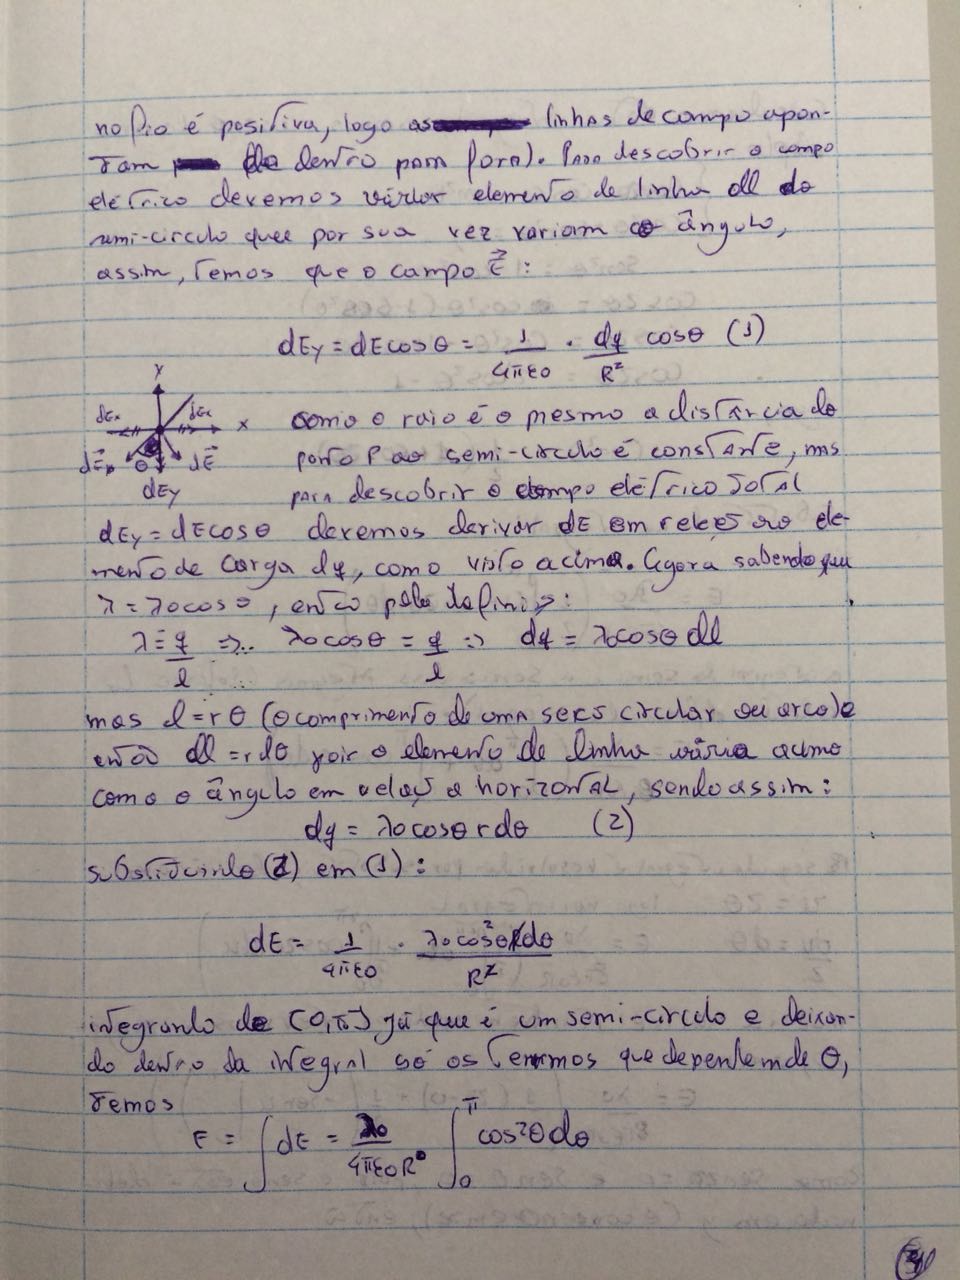 no fio é positiva, logo as linhas de campo apon-
tam de dentro para fora). Para descobrir o campo
elétrico devemos variar elemento de linha dl do
semi-circulo que por sua vez variam o ângulo,
assim, temos que o campo E⃗ :
dEy = dE cosθ = 1/4πε0 · dq/R² cosθ (1)
Y
dEx dEx X
dE⃗ θ dE⃗
dEy
como o raio é o mesmo a distância do
ponto P ao semi-circulo é constante, mas
para descobrir o campo elétrico total
dEy = dE cosθ devemos derivar dE em relação ao ele-
mento de carga dq, como visto acima. Agora sabendo que
λ = λ0 cosθ, então pela definição:
λ = q/l => λ0 cosθ = q/l => dq = λ0 cosθ dl
mas l = rθ (o comprimento de uma circular ou arco) e
então dl = rdθ o elemento de linha varia
como o ângulo em relação a horizontal, sendo assim:
dq = λ0 cosθ r dθ (2)
substituindo (2) em (1):
dE = 1/4πε0 · λ0 cos²θ R dθ/R²
integrando de [0,π] já que é um semi-circulo e deixan-
do dentro da integral só os termos que dependem de θ,
temos
E = ∫ dE = λ0/4πε0R ∫₀^π cos²θ dθ